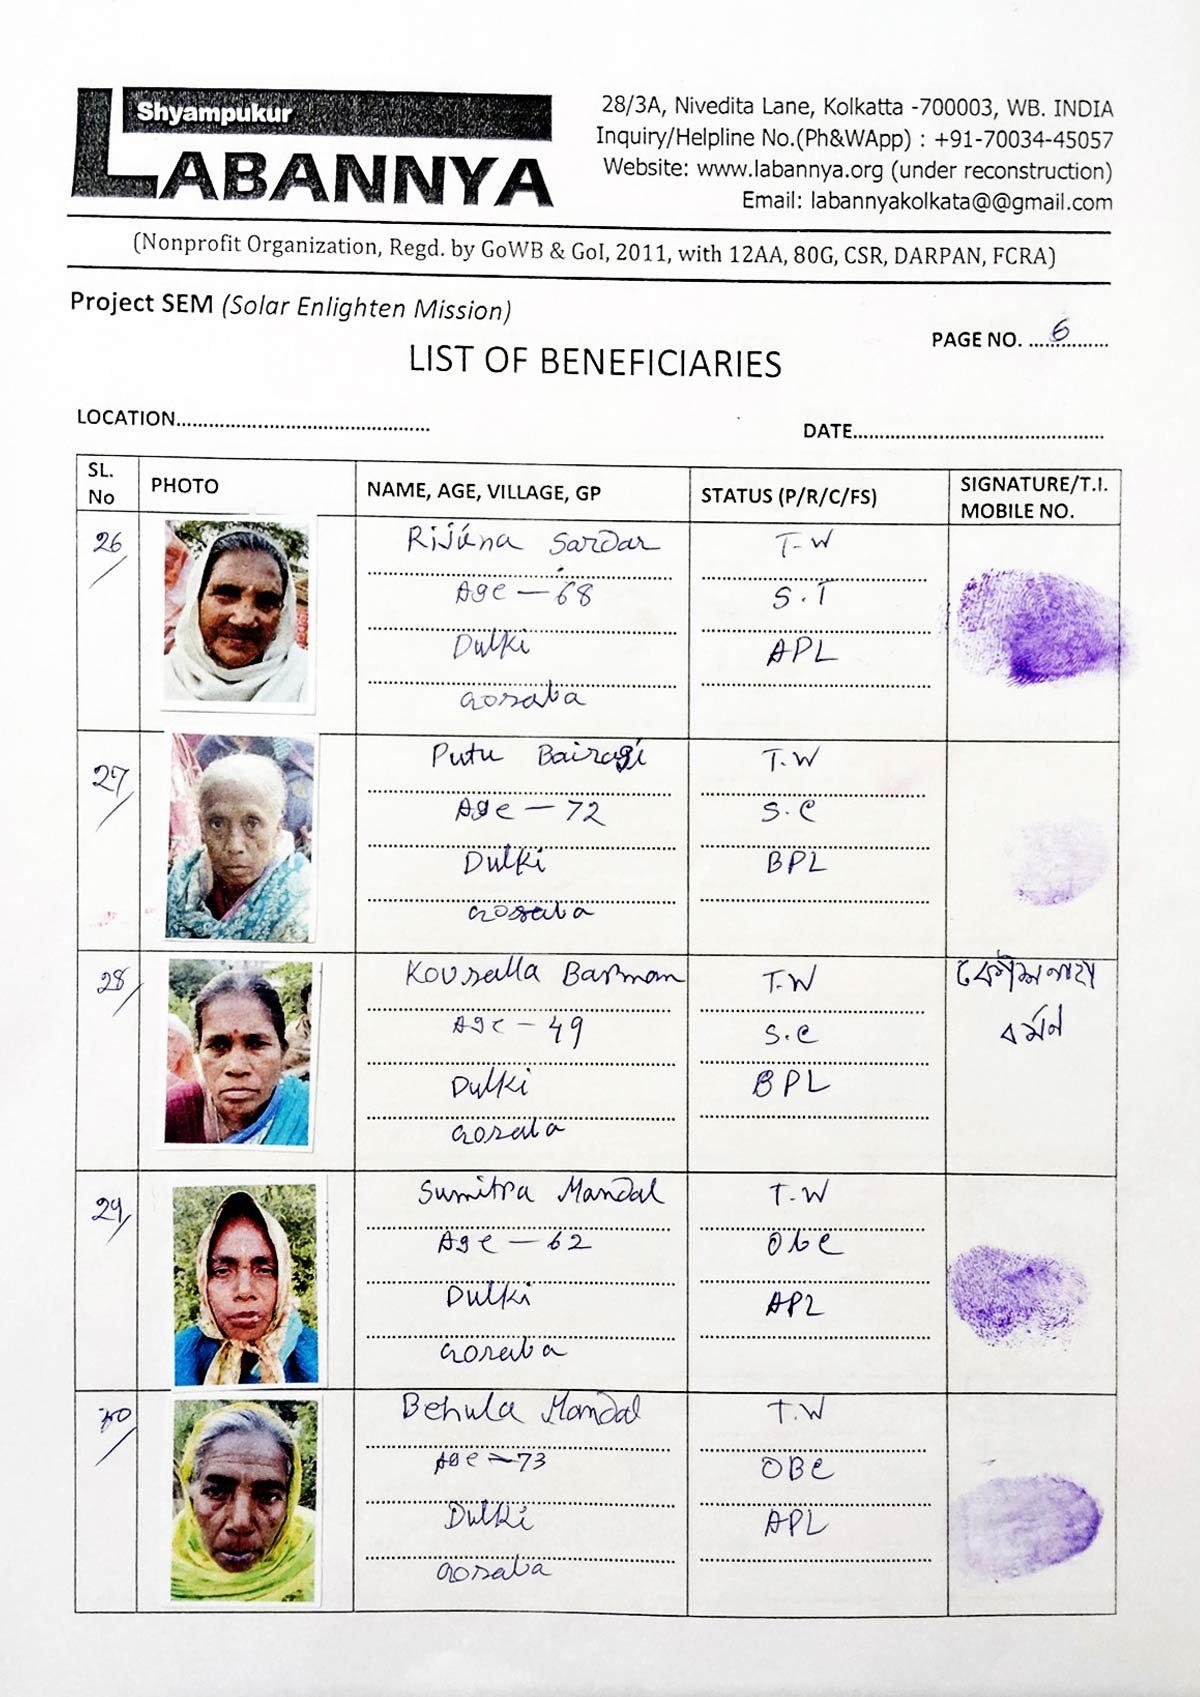 Shyampukur
LABANNYA
28/3A, Nivedita Lane, Kolkatta -700003, WB. INDIA
Inquiry/Helpline No.(Ph&WApp) : +91-70034-45057
Website: www.labannya.org (under reconstruction)
Email: labannyakolkata@@gmail.com
(Nonprofit Organization, Regd. by GoWB & GoI, 2011, with 12AA, 80G, CSR, DARPAN, FCRA)
Project SEM (Solar Enlighten Mission)
PAGE NO. ...6...
LIST OF BENEFICIARIES
LOCATION..............................................
DATE..............................................
SL. No PHOTO NAME, AGE, VILLAGE, GP STATUS (P/R/C/FS) SIGNATURE/T.I. MOBILE NO.
26/ Rijuna Sardar T-W
Age — 68 S.T
Dulki APL
Gosaba
27/ Putu Bairagi T.W
Age — 72 S.C
Dulki BPL
Gosaba
28/ Kousalla Barman T.W
Age — 49 S.C বর্মন
Dulki BPL
Gosaba
29/ Sumitra Mandal T.W
Age — 62 ObC
Dulki APL
Gosaba
30/ Behula Mandal T.W
Age — 73 OBC
Dulki APL
Gosaba